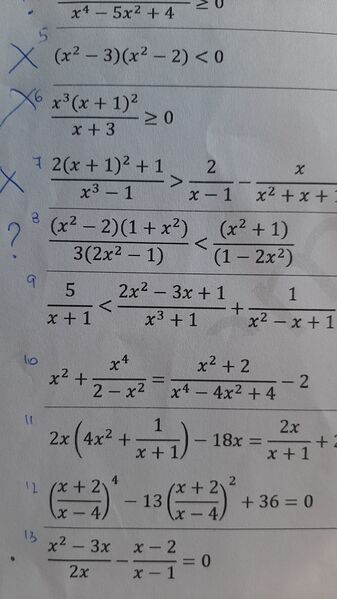 x⁴ − 5x² + 4 ≥ 0
5 (x² − 3)(x² − 2) < 0
6 x³(x + 1)² / x + 3 ≥ 0
7 2(x + 1)² + 1 / x³ − 1 > 2 / x − 1 − x / x² + x + 1
? 8 (x² − 2)(1 + x²) / 3(2x² − 1) < (x² + 1) / (1 − 2x²)
9 5 / x + 1 < 2x² − 3x + 1 / x³ + 1 + 1 / x² − x + 1
10 x² + x⁴ / 2 − x² = x² + 2 / x⁴ − 4x² + 4 − 2
11 2x(4x² + 1 / x + 1) − 18x = 2x / x + 1 + 2
12 (x + 2 / x − 4)⁴ − 13(x + 2 / x − 4)² + 36 = 0
13 x² − 3x / 2x − x − 2 / x − 1 = 0